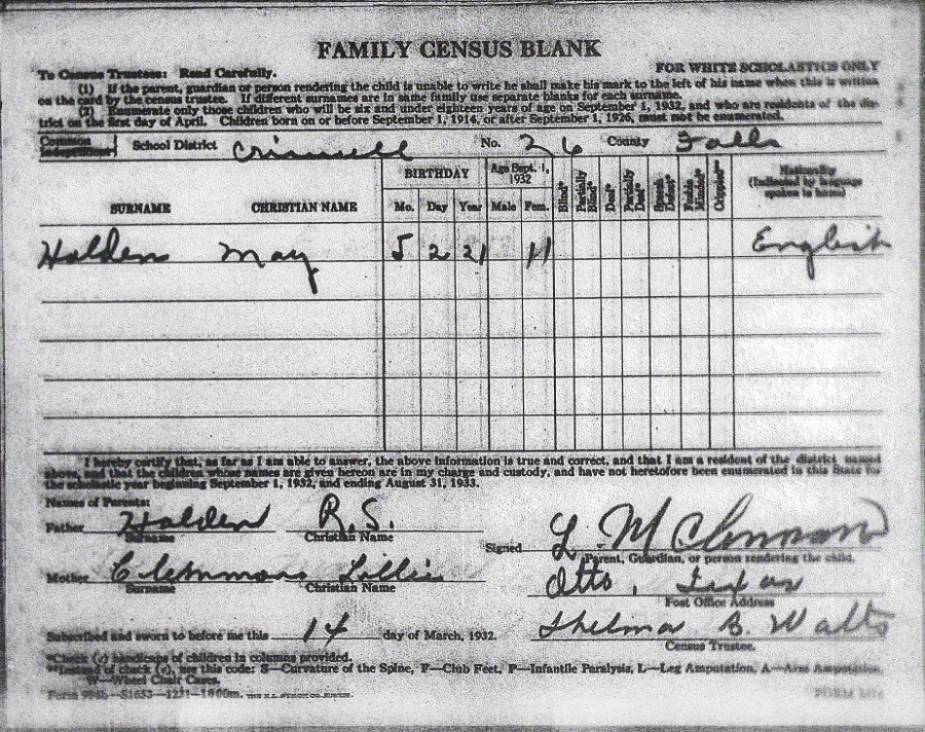 FAMILY CENSUS BLANK
To Census Trustees: Read Carefully. FOR WHITE SCHOLASTICS ONLY
(1) If the parent, guardian or person rendering the child is unable to write he shall make his mark to the left of his name when this is written
on the card by the census trustee. If different surnames are in same family use separate blanks for each surname.
(2) Enumerate only those children who will be six and under eighteen years of age on September 1, 1932, and who are residents of the dis-
trict on the first day of April. Children born on or before September 1, 1914, or after September 1, 1926, must not be enumerated.
Common
Independent School District No. 26 County Falls
BIRTHDAY Age Sept. 1, 1932 Blind* Partially Blind* Deaf* Partially Deaf* Speech Defect* Feeble Minded* Crippled** Nationality (Indicated by language spoken in home)
SURNAME CHRISTIAN NAME Mo. Day Year Male Fem.
Holden May 5 2 21 11 English
I hereby certify that, as far as I am able to answer, the above information is true and correct, and that I am a resident of the district named
above, and that the children whose names are given hereon are in my charge and custody, and have not heretofore been enumerated in this State for
the scholastic year beginning September 1, 1932, and ending August 31, 1933.
Names of Parents:
Father Holden R.S.
Surname Christian Name
Signed L. McClennan
Parent, Guardian, or person rendering the child.
Mother Clemmons Lillie
Surname Christian Name
Otto, Texas
Post Office Address
Subscribed and sworn to before me this 14 day of March, 1932.
Thelma B. Watts
Census Trustee.
*Check (✓) handicaps of children in columns provided.
**Instead of check (✓), use this code: S—Curvature of the Spine, F—Club Feet, P—Infantile Paralysis, L—Leg Amputation, A—Arm Amputation,
W—Wheel Chair Cases.